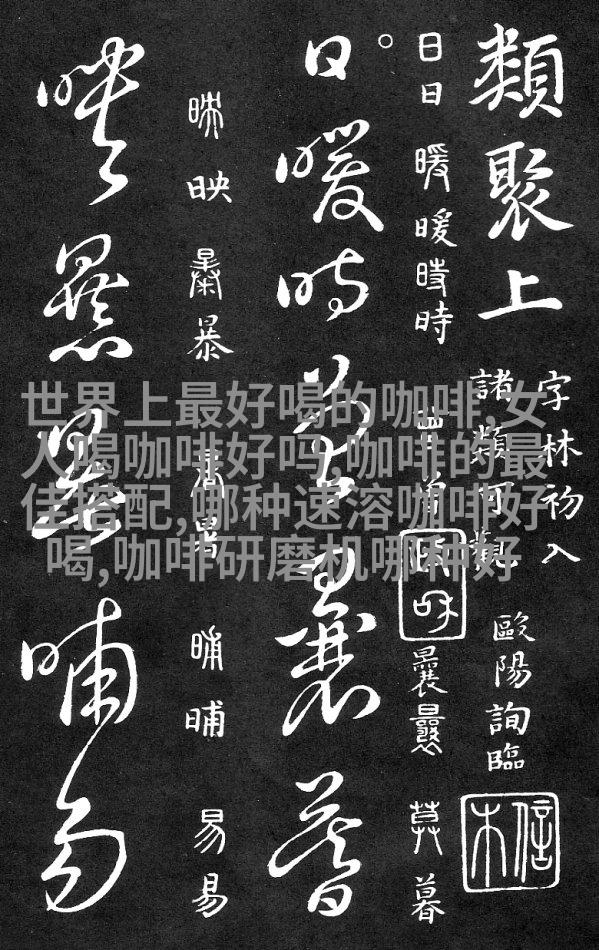 類聚上
字林初入
諸類可觀
歐陽詢臨
信本
日日
暖暖時時
曩曩
莫暮
日暖時
曩暮
昧映
暴暴
暑暑
晡晡
易易
映暴暑晡易
世界上最好喝的咖啡,女
人喝咖啡好吗,咖啡的最
佳搭配,哪种速溶咖啡好
喝,咖啡研磨机哪种好